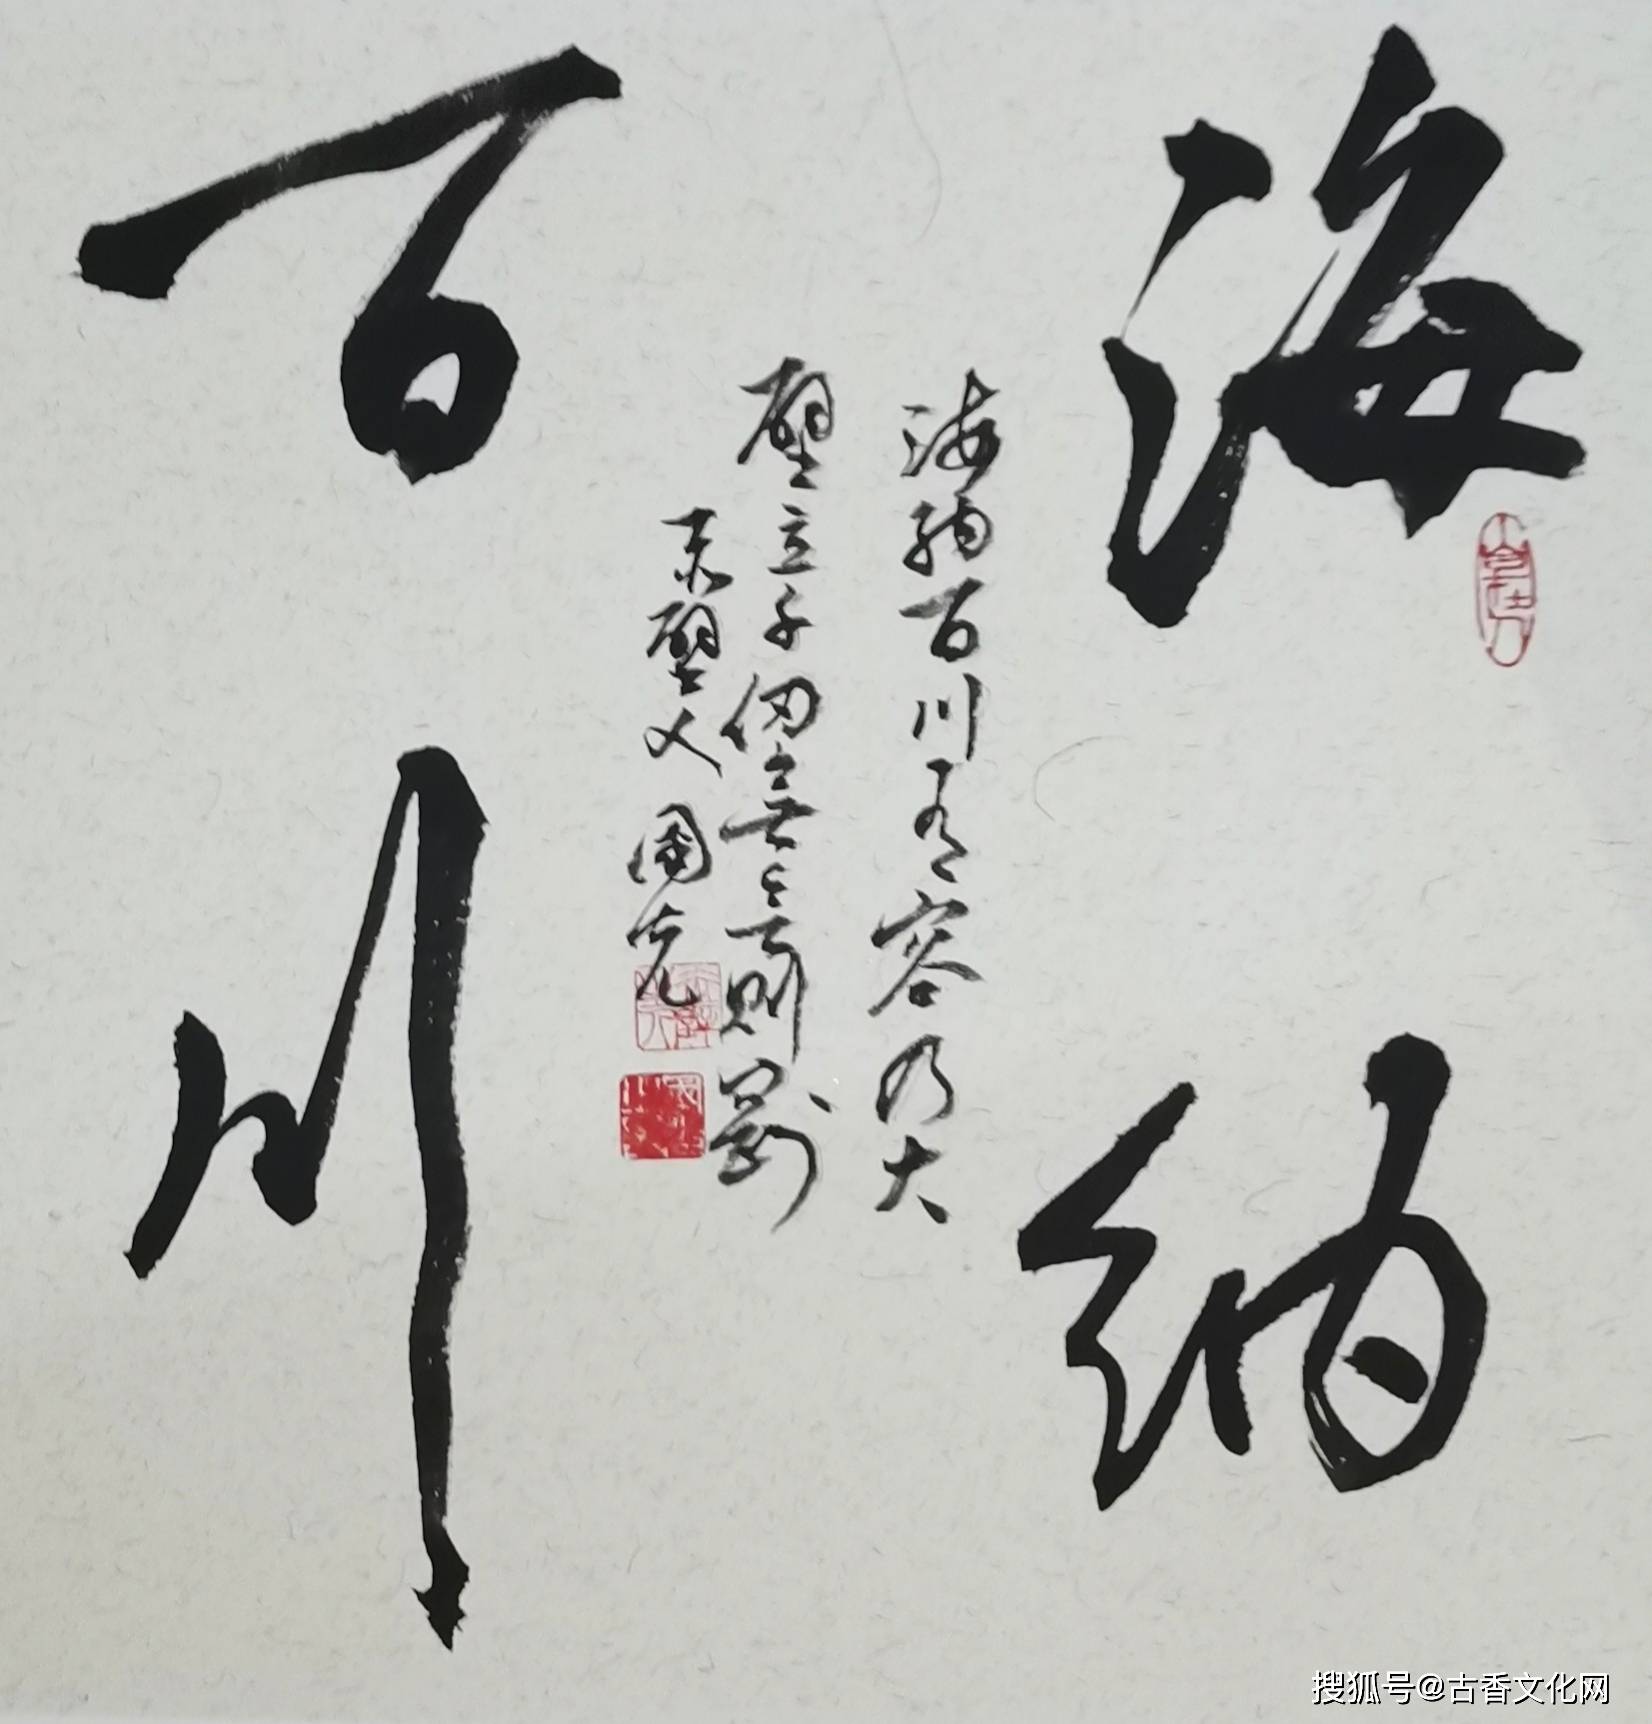 海纳
百川
海纳百川有容乃大
壁立千仞无欲则刚
赤壁人国光
搜狐号@古香文化网